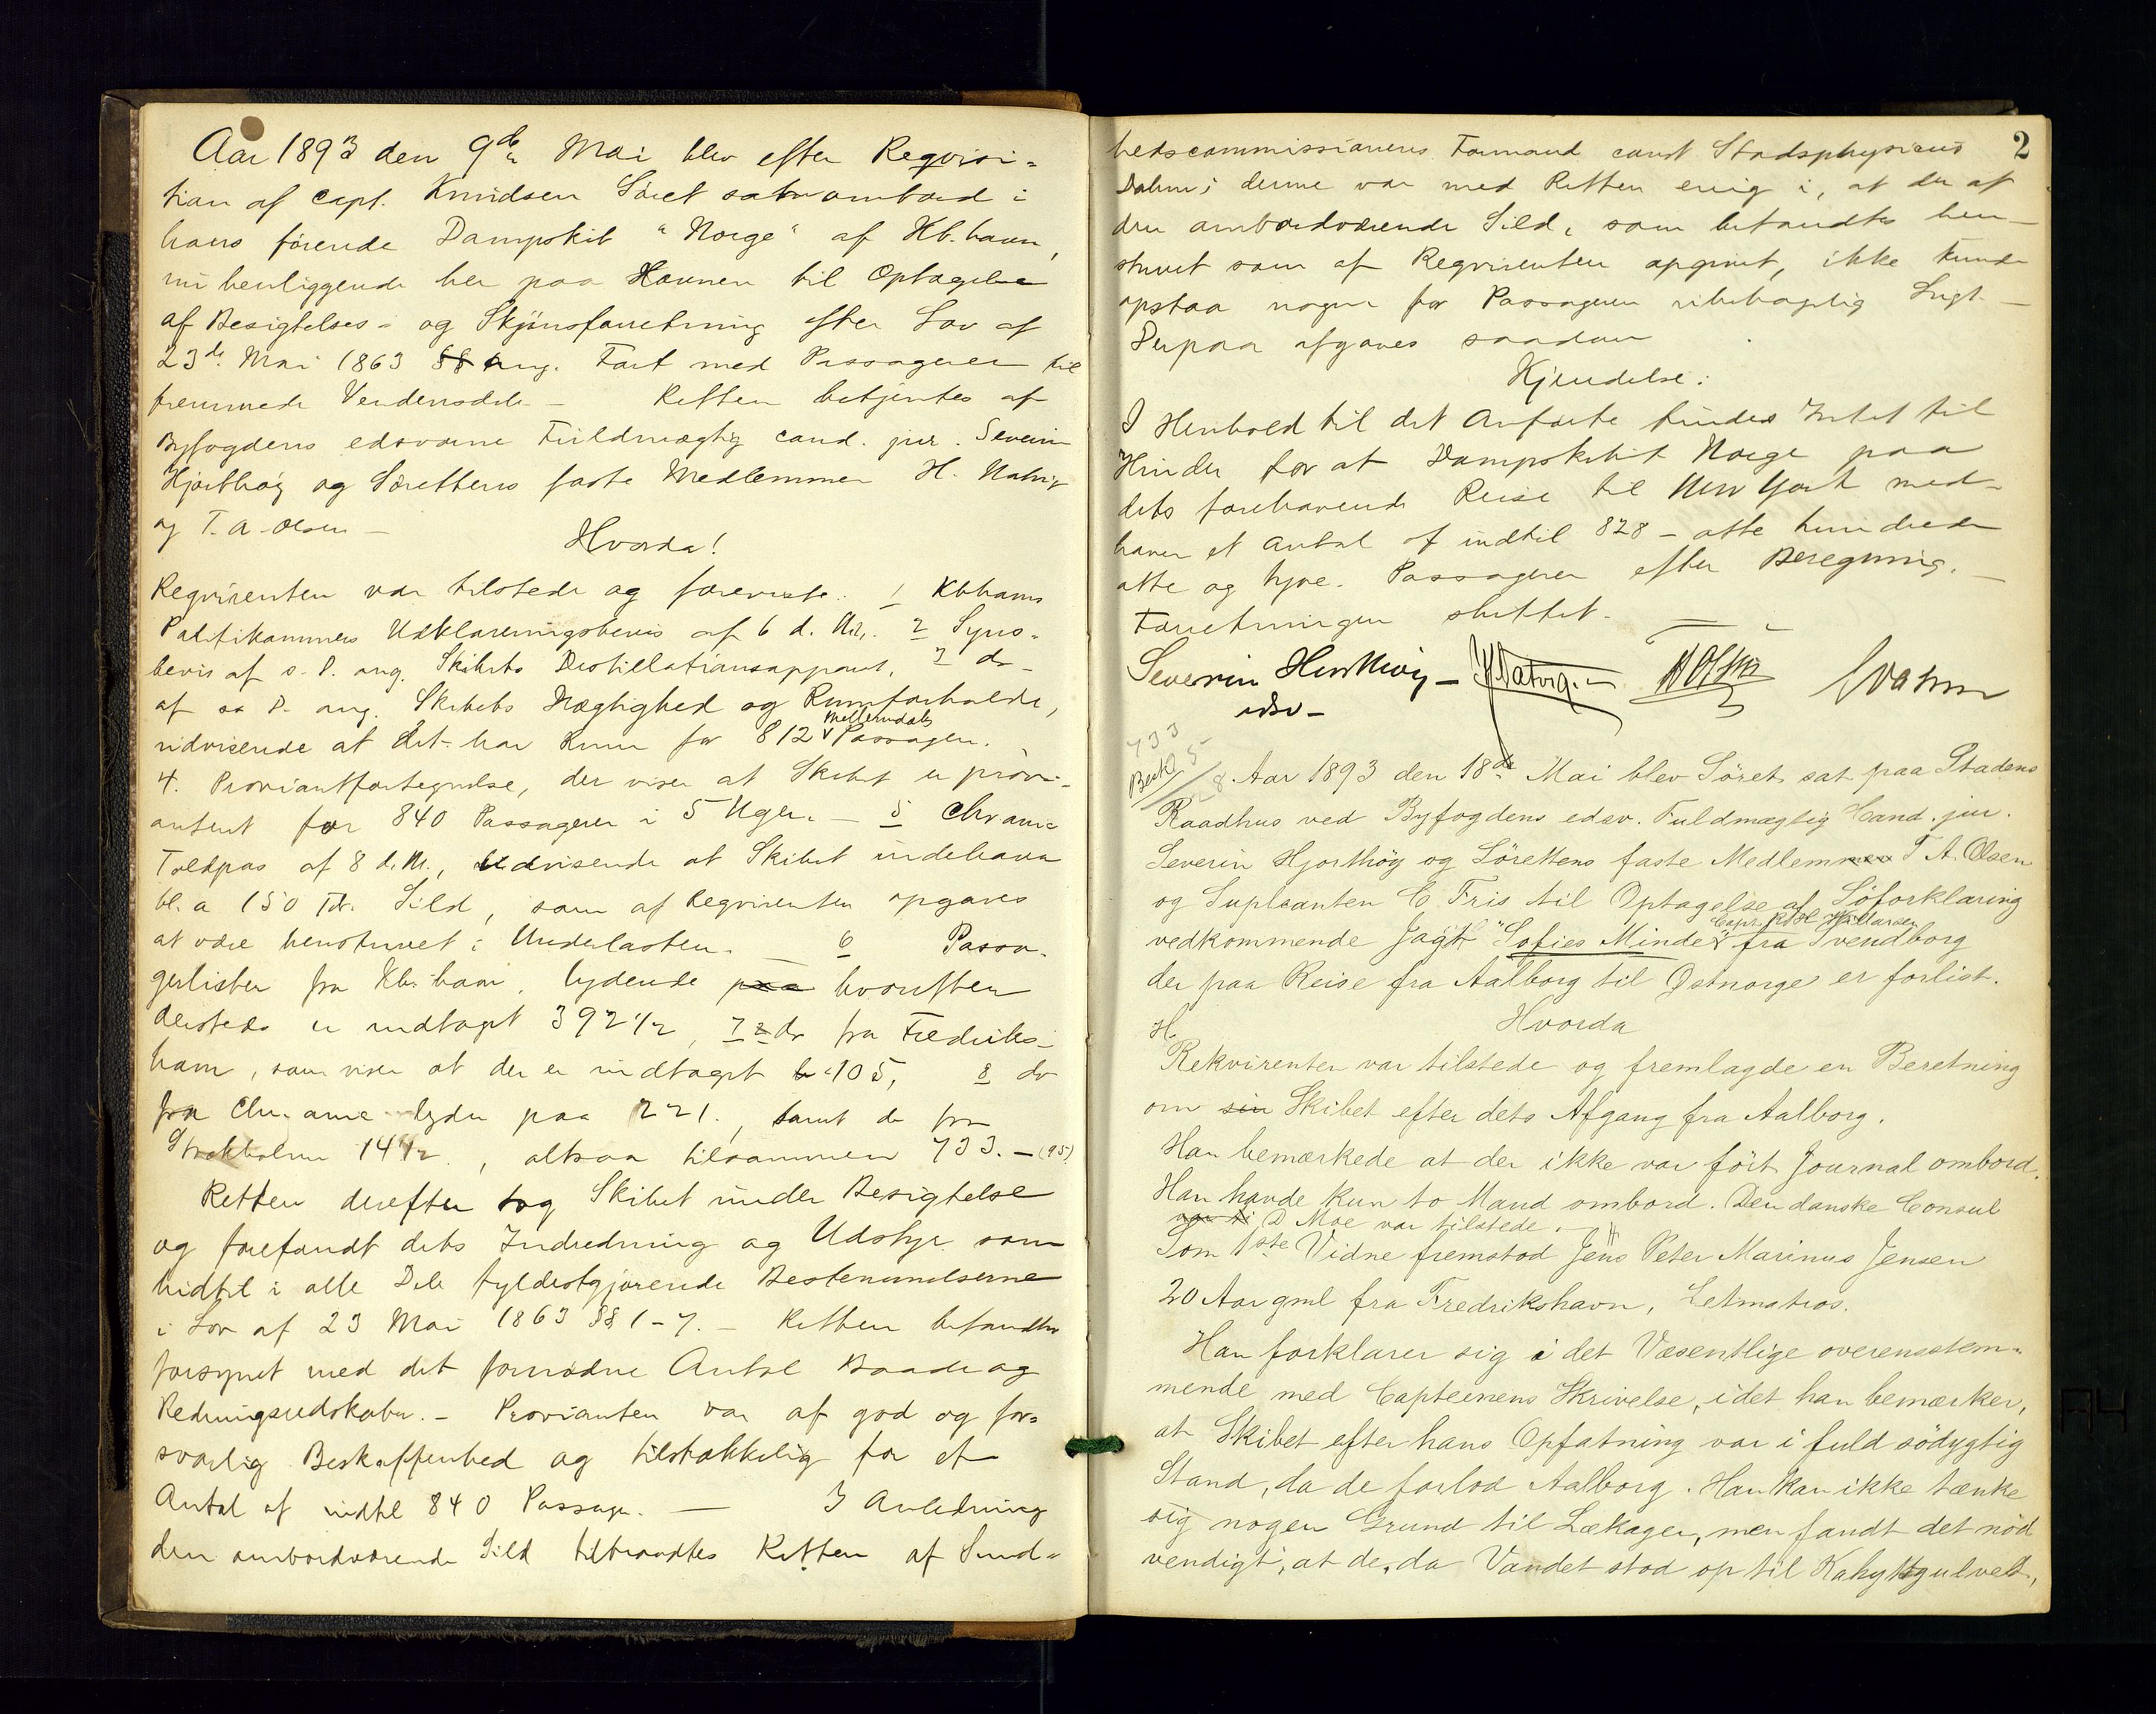 Aar 1893 den 9de Mai blev efter Reqvisi-
tion af Capt. Knudsen Söret sat ombord i
hans förende Dampskib "Norge" af Kb.havn,
nu henliggende her paa Havnen til Optagelse
af Besigtelses- og Skjönsforretning efter Lov af
23de Mai 1863 §§ ang. Fart med Passagerer til
fremmede Verdensdele - Retten betjentes af
Byfogdens edsvorne Fuldmægtig cand. jur. Severin
Hjorthöy og Sörettens faste Medlemmer H. Natvig
og T. A. Olsen -
Hvorda!
Reqvirenten var tilstede og foreviste: 1 Kbhavns
Politikammers Udklareringsbevis af 6 d. M. 2 Syns-
bevis af s. D. ang. Skibets Destillationsapparat, 3 do
af sa D. ang. Skibets Drægtighed og Rumforholde,
udvisende at det har Rum for 812 Mellemdæks Passager.
4. Proviantfortegnelse, der viser at Skibet er provi-
anteret for 840 Passagerer i 5 Uger. - 5 Chr.ania
Toldpas af 8 d. M., udvisende at Skibet indehaver
bl. a 150 Tdr. Sild, som af Reqvirenten opgaves
at være henstuvet i Underlasten. - 6 Passa-
gerlister fra Kb.havn, lydende paa hvorefter
dersteds er indtaget 392 1/2, 7 do fra Fredriks-
havn, som viser at der er indtaget 105, 8 do
fra Chr.ania lyder paa 221., samt do fra
Stockholm 14 1/2., altsaa tilsammen 733. - (95)
Retten derefter tog Skibet under Besigtelse
og forefandt dets Indredning og Udstyr som
hidtil i alle Dele fyldestgjörende Bestemmelserne
i Lov af 23 Mai 1863 §§ 1-7. - Retten befandtes
forsynet med det fornödne Antal Baade og
Redningsredskaber. - Provianten var af god og for-
svarlig Beskaffenhed og tilstrækkelig for et
Antal af indtil 840 Passager. - I Anledning
den ombordværende Sild tiltraadtes Retten af Sund-
2
hedscommissionens Formand const Stadsphysicus
Dahm; denne var med Retten enig i, at der af
den ombordværende Sild, som befandtes hen-
stuvet som af Reqvirenten opgivet, ikke kunde
opstaa nogen for Passagerer ubehagelig Lugt. -
Derpaa afgaves saadan
Kjendelse:
I Henhold til det Anförte findes Intet til
Hinder for at Dampskibet Norge paa
dets forehavende Reise til New York med-
haver et Antal af indtil 828 - otte hundrede
otte og tyve. Passagerer efter Beregning. -
Forretningen sluttet.
Severin Hjorthöy - H Natvig. TAOlsen Dahm
edsv -
733
5
Aar 1893 den 18de Mai blev Söret sat paa Stadens
Raadhus ved Byfogdens edsv. Fuldmægtig Cand. jur.
Severin Hjorthöy og Sörettens faste Medlemmer T. A. Olsen
og Supleanten C Fris til Optagelse af Söforklaring
vedkommende Jagt "Sofies Minde" fra Svendborg
der paa Reise fra Aalborg til Østnorge er forlist.
Hvorda
Rekvirenten var tilstede og fremlagde en Beretning
om sin Skibet efter dets Afgang fra Aalborg.
Han bemærkede at der ikke var fört Journal ombord.
Han havde kun to Mand ombord. Den danske Consul
D Moe var tilstede. -
Som 1ste Vidne fremstod Jens Peter Marinus Jensen
20 Aar gml fra Fredrikshavn, Letmatros.
Han forklarer sig i det Væsentlige overensstem-
mende med Capteinens Skrivelse, idet han bemærker,
at Skibet efter hans Opfatning var i fuld södygtig
Stand, da de forlod Aalborg. Han kan ikke tænke
sig nogen Grund til Lækagen, men fandt det nöd
vendigt, at de, da Vandet stod op til Kahytgulvet,